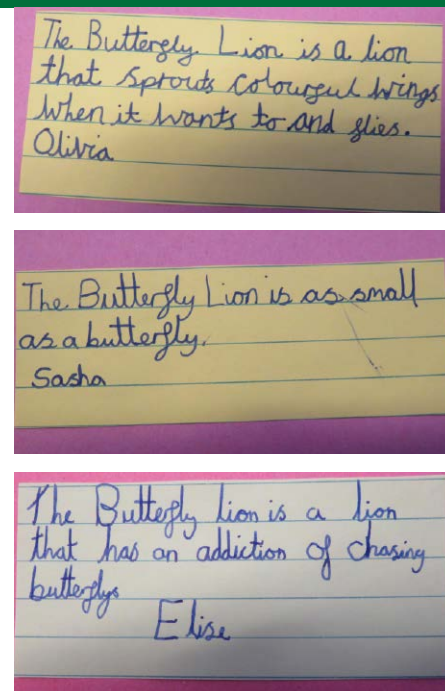 The Butterfly Lion is a lion
that sprouts colourful wings
when it wants to and flies.
Olivia
The Butterfly Lion is as small
as a butterfly.
Sasha
The Butterfly Lion is a lion
that has an addiction of chasing
butterflys
Elise